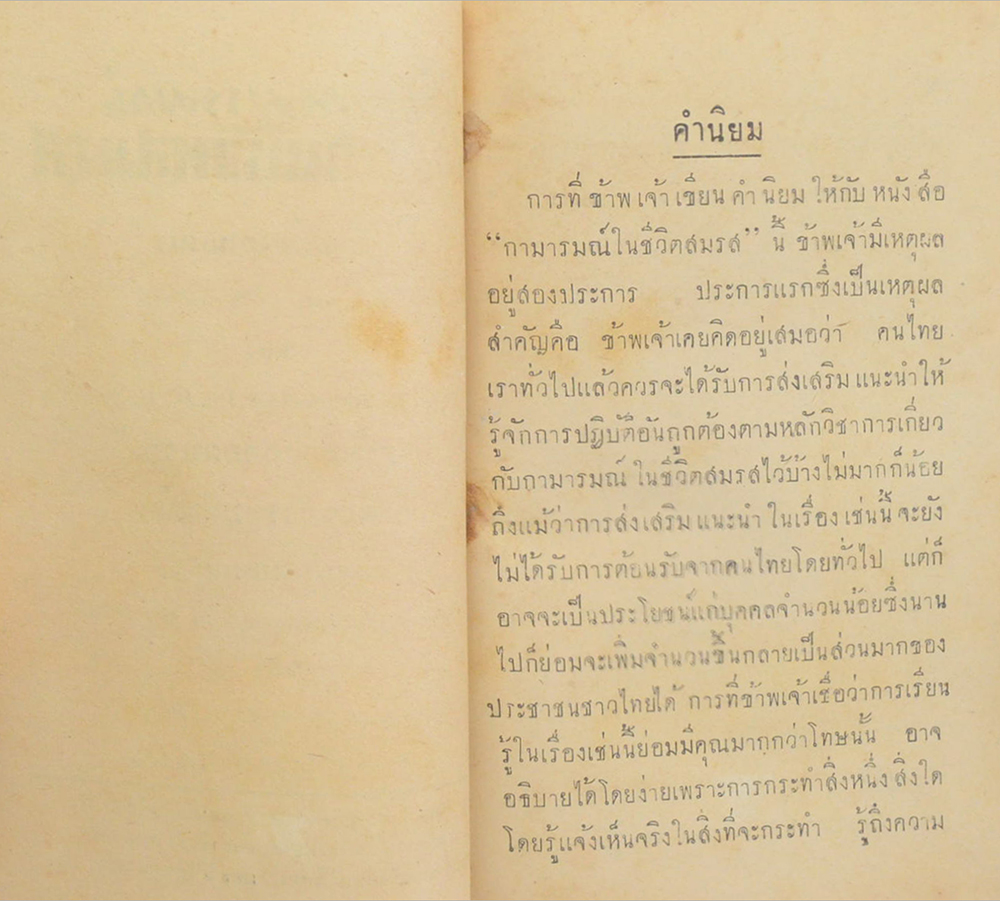 คำนิยม
การที่ ข้าพเจ้า เขียน คำ นิยม ให้กับ หนังสือ
“กามารมณ์ในชีวิตสมรส” นี้ ข้าพเจ้ามีเหตุผล
อยู่สองประการ ประการแรกซึ่งเป็นเหตุผล
สำคัญคือ ข้าพเจ้าเคยคิดอยู่เสมอว่า คนไทย
เราทั่วไปแล้วควรจะได้รับการส่งเสริม แนะนำให้
รู้จักการปฏิบัติอันถูกต้องตามหลักวิชาการเกี่ยว
กับกามารมณ์ ในชีวิตสมรสไว้บ้างไม่มากก็น้อย
ถึงแม้ว่าการส่งเสริม แนะนำ ในเรื่อง เช่นนี้ จะยัง
ไม่ได้รับการต้อนรับจากคนไทยโดยทั่วไป แต่ก็
อาจจะเป็นประโยชน์แก่บุคคลจำนวนน้อยซึ่งนาน
ไปก็ย่อมจะเพิ่มจำนวนขึ้นกลายเป็นส่วนมากของ
ประชาชนชาวไทยได้ การที่ข้าพเจ้าเชื่อว่าการเรียน
รู้ในเรื่องเช่นนี้ย่อมมีคุณมากกว่าโทษนั้น อาจ
อธิบายได้โดยง่ายเพราะการกระทำสิ่งหนึ่ง สิ่งใด
โดยรู้แจ้งเห็นจริงในสิ่งที่จะกระทำ รู้ถึงความ